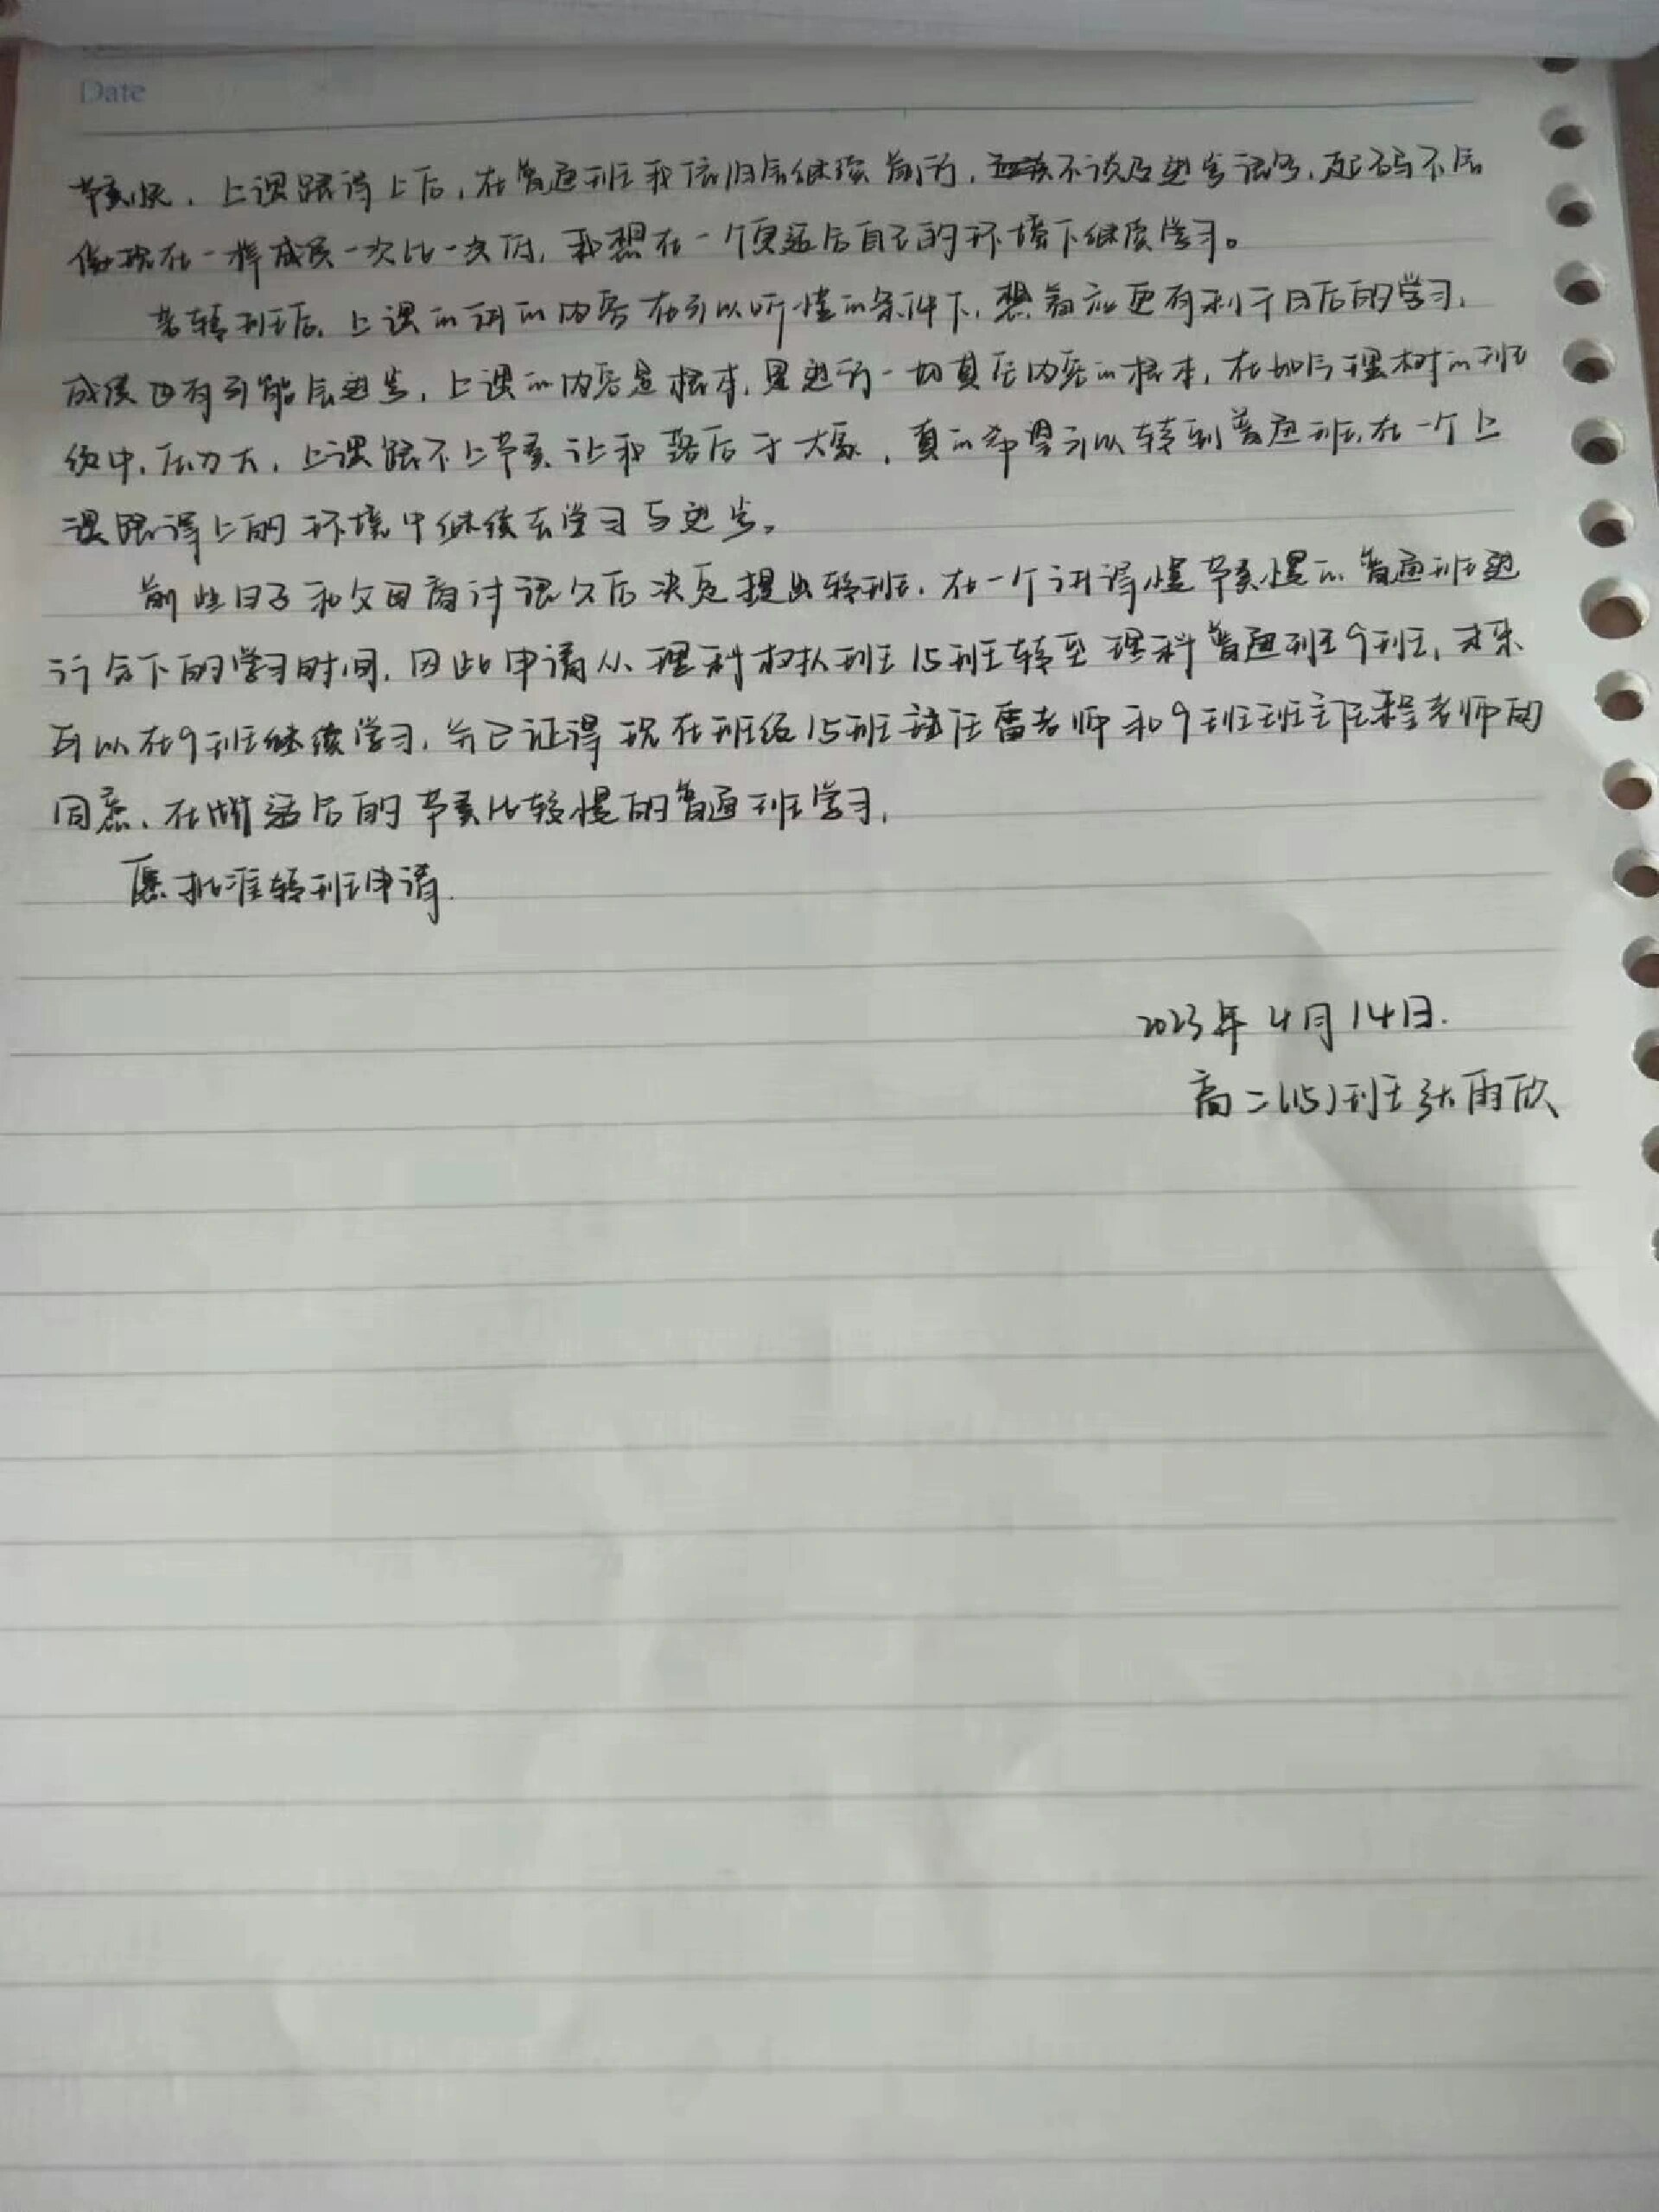 Date
节奏快，上课跟得上后，在普通班我依旧会继续前行，不谈及进步很多，起码不会
像现在一样成绩一次比一次低，我想在一个更适合自己的环境下继续学习。
若转班后，上课所讲的内容在可以听懂的条件下，想有应更有利于日后的学习，
成绩也有可能会进步，上课的内容是根本，是进行一切其后内容的根本，在如今理科的班
级中，压力大，上课跟不上节奏让我落后于大家，真的希望可以转到普通班，在一个上
课跟得上的环境中继续去学习与进步。
前些日子和父母商讨很久后决定提出转班，在一个讲得慢节奏慢的普通班进
行余下的学习时间，因此申请从理科班15班转至理科普通班9班，未来
可以在9班继续学习，并已证得现在班级15班雷老师和9班班主任程老师的
同意，在适合的节奏比较慢的普通班学习，
愿批准转班申请.
2023年4月14日.
高二(15)班张雨欣